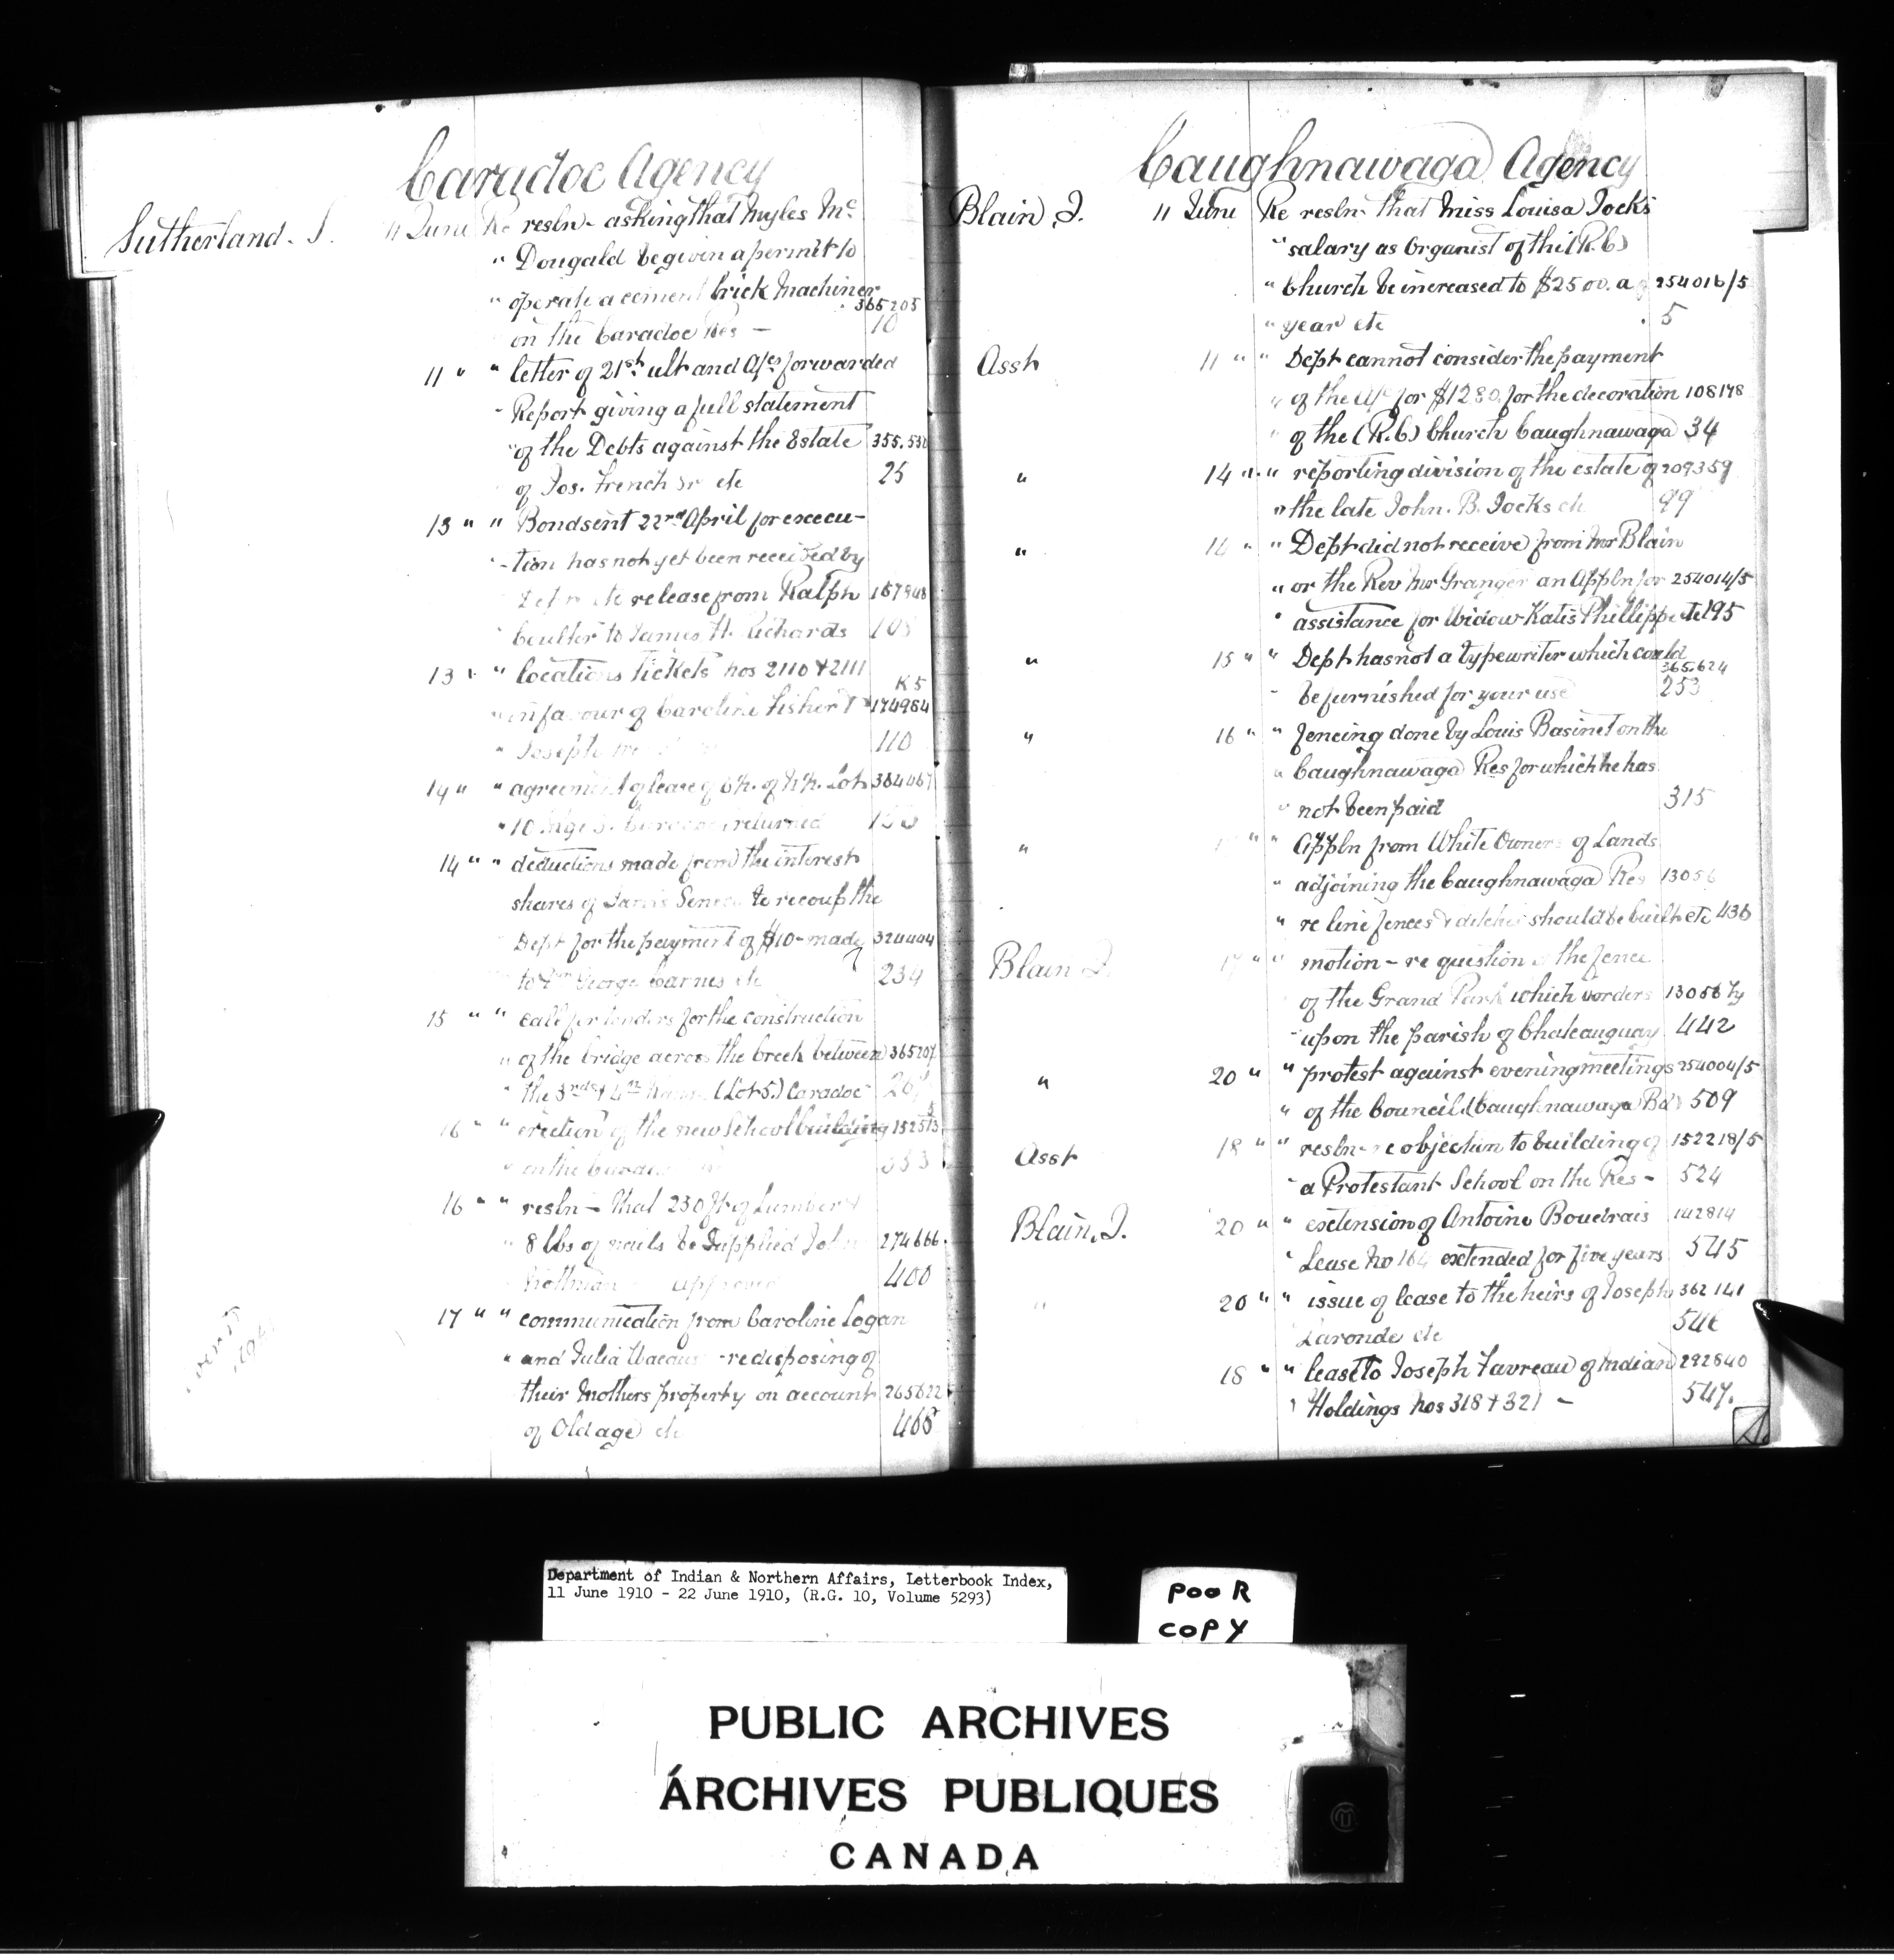 Caradoc Agency
Sutherland. S. 11 June Re resln - asking that Myles Mc
" Dougald be given a permit to
" operate a cement brick Machiner
365205
on the Caradoc Res - 10
11 " " letter of 21st ult and a/cs forwarded
" Report giving a full statement
" of the Debts against the Estate 355.530
of Jos. French Sr etc 25
13 " " Bond sent 22nd April for execu-
-tion has not yet been received by
release from Ralph
Coulter to James H. Richards
13 " " locations tickets nos 2110 + 2111
K5
" in favour of Caroline Fisher 174984
" Joseph 110
14 " " agreement of lease of Lot
" 10 returned
14 " " deductions made from the interest
shares of to recoup the
Dept for the payment of $10 - made 324404
to George Carnes etc 234
15 " " call for tenders for the construction
" of the bridge across the creek between 365207
" the 3rd & 4th (Lot 5.) Caradoc
16 " " erection of the new School building
on the
16 " " resln - that 230 ft of Lumber +
" 8 lbs of nails be Supplied John 274666.
approved 400
17 " " communication from Caroline Logan
" and Julia - re disposing of
their Mothers property on account 265822
of Old age etc 468
Caughnawaga Agency
Blain J. 11 June Re resln - that Miss Louisa Jocks
" salary as Organist of the (R.C)
" Church be increased to $25.00. a 254016/5
" year etc 5
Asst 11 " " Dept cannot consider the payment
" of the a/c for $1280. for the decoration 108178
" of the (R.C) Church Caughnawaga 34
" 14 " " reporting division of the estate of 209359
" the late John. B. Jocks etc 99
" 14 " " Dept did not receive from Mr Blain
" or the Rev Mr Granger an Appln for 254014/5
" assistance for Widow Katis Phillippe etc 195
" 15 " " Dept has not a typewriter which could
365.624
- be furnished for your use 253
" 16 " " fencing done by Louis Basinet on the
" Caughnawaga Res for which he has
" not been paid 315
" " " Appln from White Owners of Lands
" adjoining the Caughnawaga Res 13056
" re line fences & ditches should be built etc 436
Blain J. 17 " " motion - re question of the fence
of the Grand Park which borders
" upon the parish of Chateauguay 442
" 20 " " protest against evening meetings 254004/5
" of the Council (Caughnawaga Bd) 509
Asst 18 " " resln - re objection to building of 152218/5
" a Protestant School on the Res - 524
Blain, J. 20 " " extension of Antoine Boudrais 142814
" Lease No 164 extended for five years 545
" 20 " " issue of lease to the heirs of Joseph 362141
Laronde etc 546
18 " " lease to Joseph Favreau of Indian 292840
" Holdings Nos 318 + 321 - 547.
Department of Indian & Northern Affairs, Letterbook Index,
11 June 1910 - 22 June 1910, (R.G. 10, Volume 5293)
POOR
COPY
PUBLIC ARCHIVES
ARCHIVES PUBLIQUES
CANADA